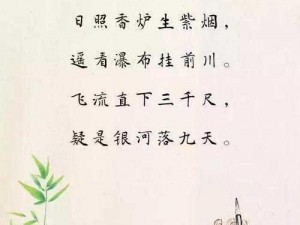 日照香炉生紫烟，
遥看瀑布挂前川。
飞流直下三千尺，
疑是银河落九天。